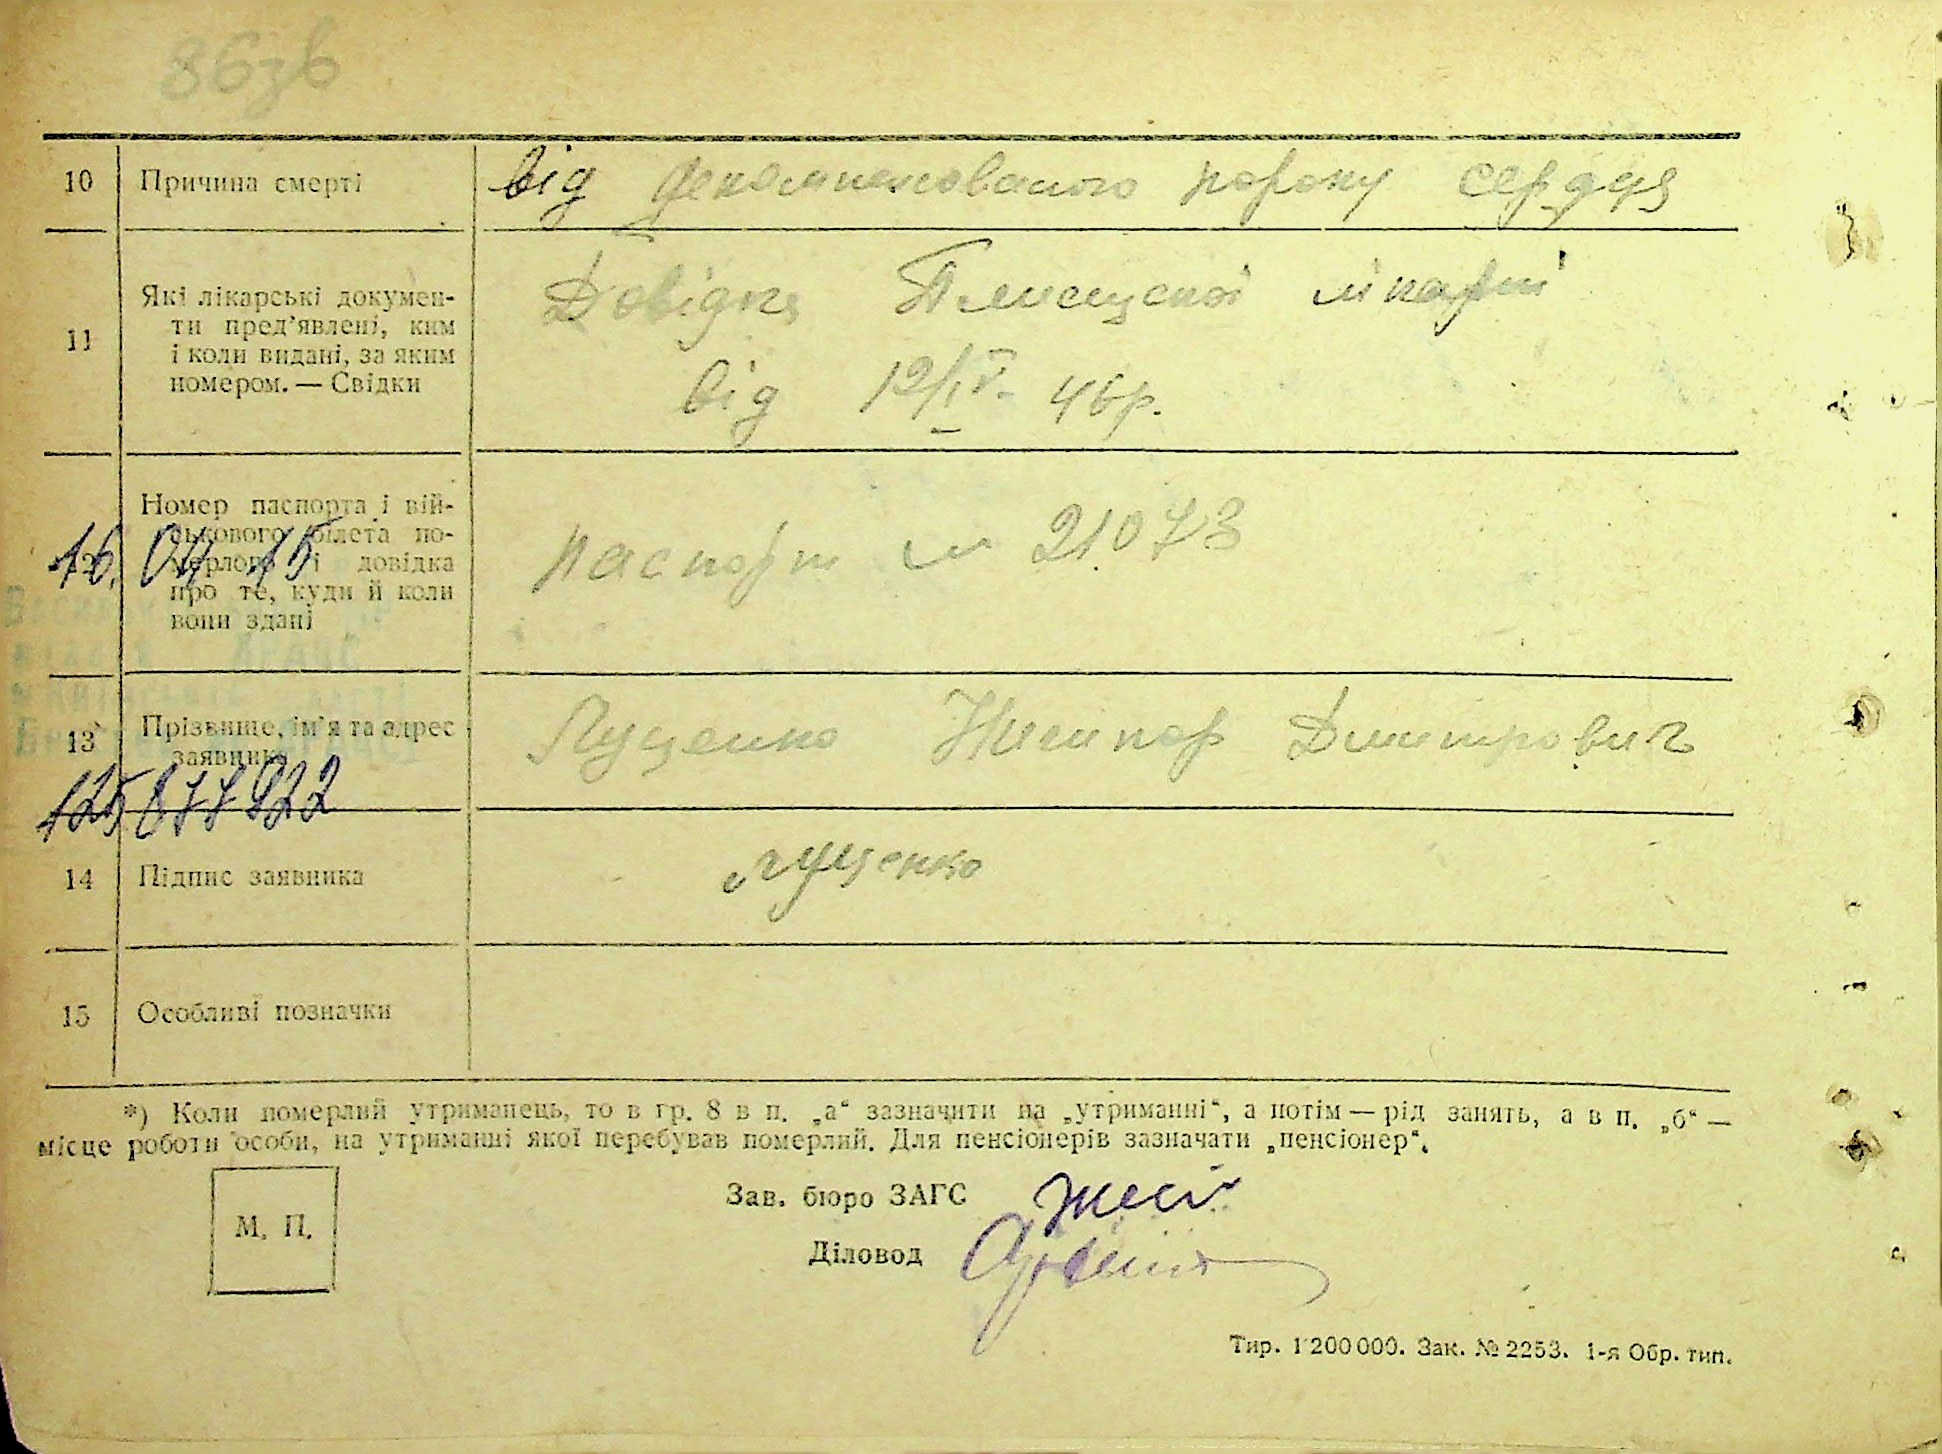 86зв
10 Причина смерті від декомпенсованого пороку сердця
11 Які лікарські докумен-
ти пред’явлені, ким
і коли видані, за яким
номером. — Свідки
Довідка лікарні
від 12/IV- 46р.
12 Номер паспорта і вій-
ськового білета по-
мерлого і довідка
про те, куди й коли
вони здані
паспорт № 21073
16. 04 15
13 Прізвище, ім’я та адрес
заявника
Луценко Никипор Дмитрович
125 877922
14 Підпис заявника Луценко
15 Особливі позначки
*) Коли померлий утриманець, то в гр. 8 в п. „а“ зазначити на „утриманні“, а потім — рід занять, а в п. „б“ —
місце роботи особи, на утриманні якої перебував померлий. Для пенсіонерів зазначати „пенсіонер“.
М. П.
Зав. бюро ЗАГС
Діловод
Тир. 1200000. Зак. № 2253. 1-я Обр. тип.